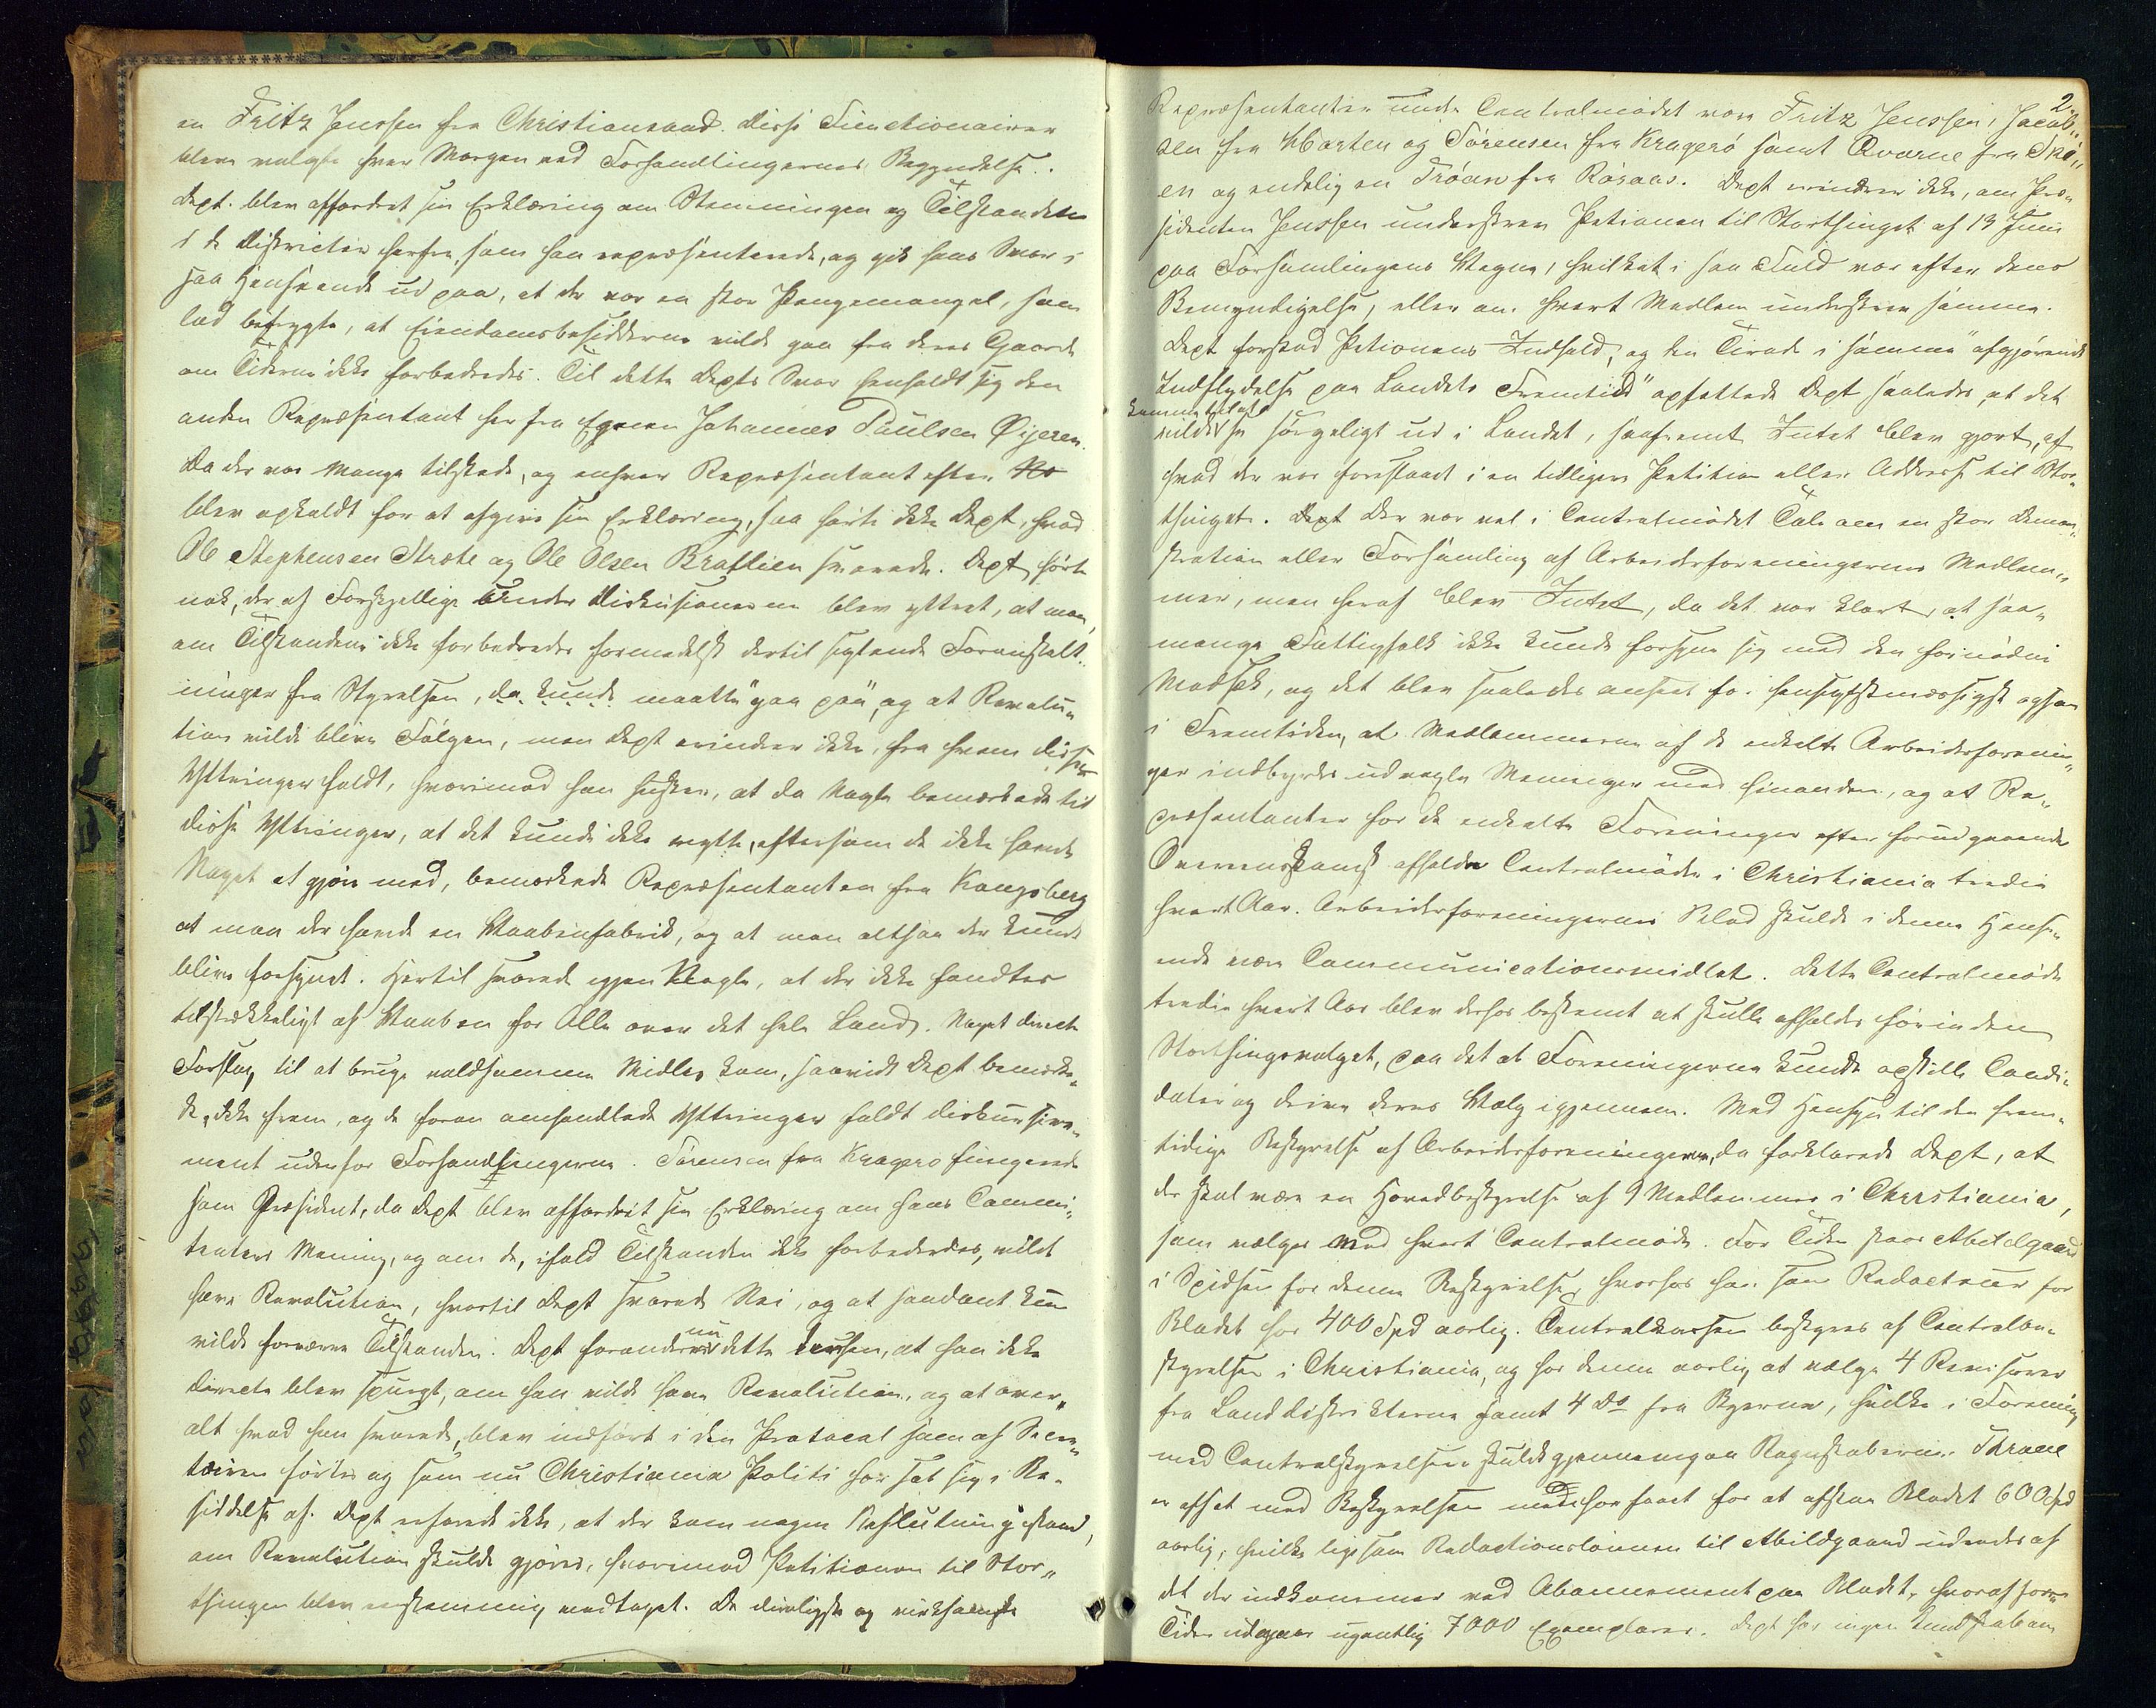 en Fritz Jenssen fra Christianssand. Disse Functionairer
bleve valgte hver Morgen ved Forhandlingernes Begyndelse.
Dept. blev affordret sin Erklæring om Stemningen og Tilstanden
i de Districter herfra, som han repræsenterede, og gik hans Svar i
saa Henseende ud paa, at der var en stor Pengemangel, som
lod befrygte, at Eiendomsbesidderne vilde gaa fra deres Gaarde
om Tiderne ikke forbedredes. Til dette Depts Svar henholdt sig den
anden Repræsentant her fra Egnen Johannes Paulsen Øijeren.
Da der var mange tilstede, og enhver Repræsentant efter No
blev opkaldt for at afgive sin Erklæring, saa hørte ikke Dept, hvad
Ole Stephensen Strøte og Ole Olsen Braflien svarede. Dept hørte
nok, der af Forskjellige under Diskusionerne blev yttret, at man,
om Tilstanden ikke forbedredes formedelst dertil sigtende Foranstalt-
ninger fra Styrelsen, da kunde maatte "gaa paa", og at Revolu„
tion vilde blive Følgen, men Dept erindrer ikke, fra hvem disse
Yttringer faldt, hvorimod han husker, at da Nogle bemærkede til
disse Yttringer, at det kunde ikke nytte, eftersom de ikke havde
Noget at gjøre med, bemærkede Repræsentanten fra Kongsberg
at man der havde en Vaabenfabrik, og at man altsaa der kunde
blive forsynet. Hertil svarede igjen Nogle, at der ikke fandtes
tilstrækkeligt af Vaaben for Alle over det hele Land. Noget directe
Forslag til at bruge voldsomme Midler kom, saavidt Dept bemærke„
de, ikke frem, og de foran omhandlede Yttringer faldt diskursive„
ment udenfor Forhandlingerne. Sørensen fra Kragerø fungerede
som Præsident, da Dept blev affordret sin Erklæring om hans Commi„
tenters Mening, og om de, ifald Tilstanden ikke forbedredes, vilde
have Revolution, hvortil Dept svarede Nei, og at saadant kun
vilde forværre Tilstanden. Dept forandrer nu dette derhen, at han ikke
directe blev spurgt, om han vilde have Revolution, og at over„
alt hvad han svarede, blev indført i den Protocol som af Secre„
tairen førtes og som nu Christiania Politi har sat sig i Be-
siddelse af. Dept erfarede ikke, at der kom nogen Beslutning istand,
om Revolution skulde gjøres, hvorimod Petitionen til Stor„
thinget blev enstemmig vedtaget. De ivrigste og virksomste
2.
Repræsentanter under Centralmødet vare Fritz Jenssen, Jacob„
sen fra Modum og Sørensen fra Kragerø samt Qvarne fra Ski„
en og endelig en Trøan fra Røraas. Dept erindrer ikke, om Præ„
sidenten Jenssen underskrev Petitionen til Storthinget af 13 Juni
paa Forsamlingens Vegne, hvilket i saa Fald var efter dens
Bemyndigelse, eller om hvert Medlem underskrev samme.
Dept forstod Petionens Indhold, og den Tirade i samme "afgjørende
Indflydelse paa Landets Fremtid" opfattede Dept saaledes, at det
kunde
vilde se sørgeligt ud i Landet, saafremt Intet blev gjort, af
hvad der var foreslaaet i en tidligere Petition eller Addresse til Stor„
thinget. Dept Der var vel i Centralmødet Tale om en stor Demon„
stration eller Forsamling af Arbeiderforeningernes Medlem„
mer, men heraf blev Intet, da det var klart, at saa„
mange Fattigfolk ikke kunde forsyne sig med den fornødne
Madsæk, og det blev saaledes anseet for hensigtsmæssigst ogsaa
i Fremtiden, at Medlemmerne af de enkelte Arbeiderforenin„
ger indbyrdes udvexle Meninger med hinanden, og at Re„
præsentanter for de enkelte Foreninger efter forudgaaende
Overenskomst afholde Centralmøde i Christiania tredie
hvert Aar. Arbeiderforeningernes Blad skulde i denne Hense„
ende være Communicationsmidlet. Dette Centralmøde
tredie hvert Aar blev derfor bestemt at skulle afholdes førinden
Storthingsvalget, paa det at Foreningerne kunde opstille Candi„
dater og drive deres Valg igjennem. Med Hensyn til den frem„
tidige Bestyrelse af Arbeiderforeningerne, da forklarede Dept, at
der skal være en Hovedbestyrelse af 9 Medlemmer i Christiania,
som vælges ved hvert Centralmøde. For Tiden staar Abildgaard
i Spidsen for denne Bestyrelse, hvorhos han som Redacteur for
Bladet har 400 Spd aarlig. Centralkassen bestyres af Centralbe„
styrelsen i Christiania, og har denne aarlig at vælge 4 Revisorer
fra Landdistrikterne samt 4 Do fra Byerne, hvilke i Forening
med Centralstyrelsen skulde gjennemgaa Regnskaberne. Thrane
er afsat med Bestyrelsen men har faaet for at afstaa Bladet 600 Spd
aarlig, hvilke ligesom Redactionslønnen til Abildgaard udredes af
det der indkommer ved Abonnement paa Bladet, hvoraf for
Tiden udgaaer ugentlig 7000 Exemplarer. Dept har ingen Kundskab om